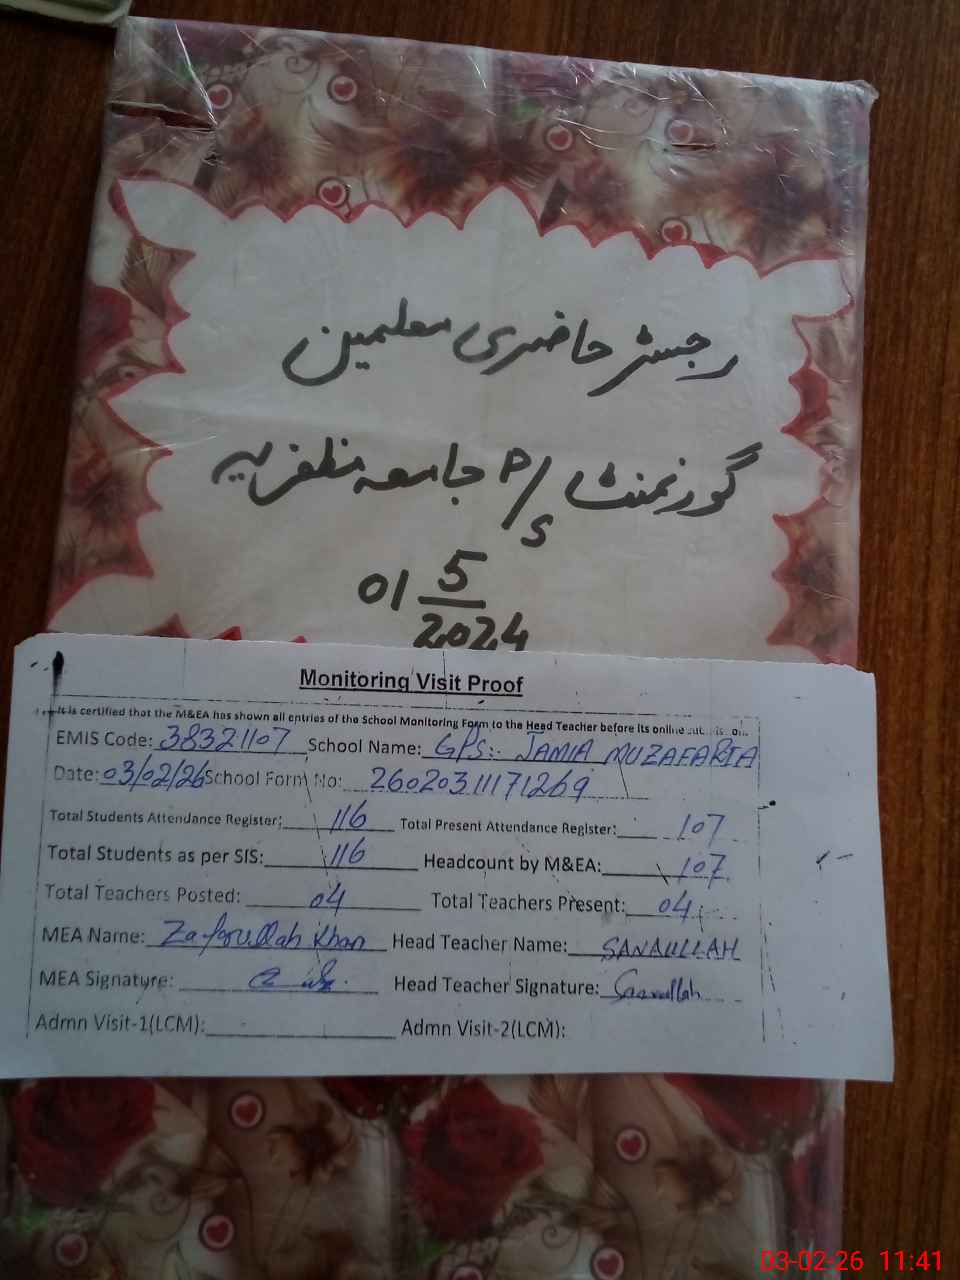 رجسٹر حاضری معلمین
گورنمنٹ P/S جامعہ مظفریہ
01 5/2024
Monitoring Visit Proof
It is certified that the M&EA has shown all entries of the School Monitoring Form to the Head Teacher before its online
EMIS Code: 38321107 School Name: GPS:- JAMIA MUZAFARIA
Date: 03/02/26 School Form No: 26020311171269
Total Students Attendance Register: 116 Total Present Attendance Register: 107
Total Students as per SIS: 116 Headcount by M&EA: 107
Total Teachers Posted: 04 Total Teachers Present: 04
MEA Name: Zafarullah Khan Head Teacher Name: SANAULLAH
MEA Signature: Head Teacher Signature: Sanaullah
Admn Visit-1(LCM): Admn Visit-2(LCM):
03-02-26 11:41